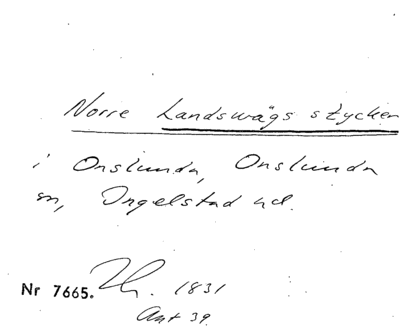 Norre Landswägs stycken
i Onslunda, Onslunda
sn, Ingelstad hd.
Nr 7665. 1831
Ant 39.